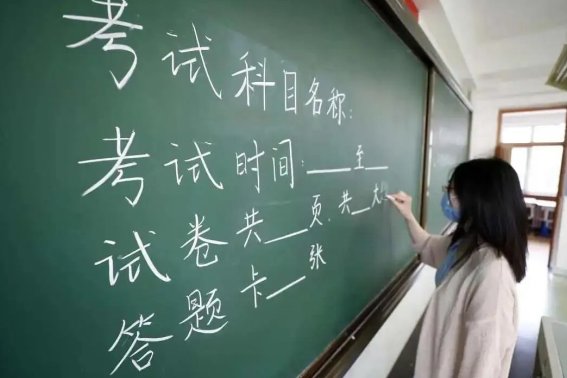 考试科目名称:
考试时间:___至___
试卷共___页,共___大
答题卡___张